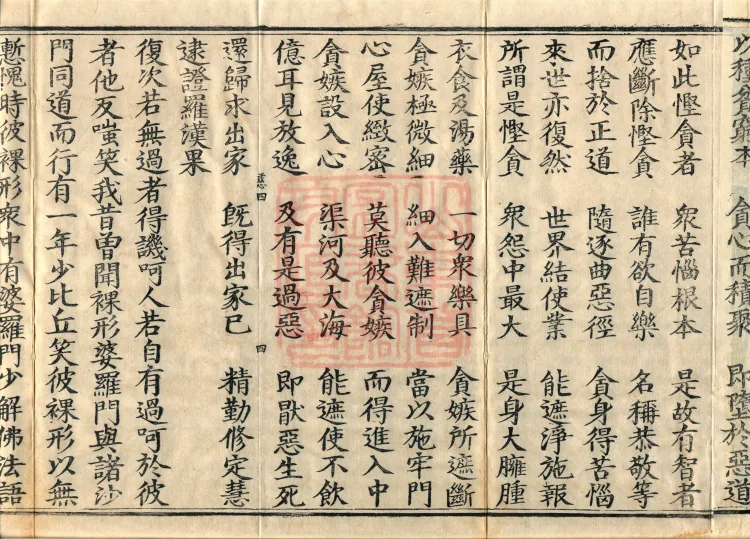 以種貧窮本　貪心而積聚　即墮於惡道
如此慳貪者　衆苦惱根本　是故有智者
應斷除慳貪　誰有欲自樂　名稱恭敬等
而捨於正道　隨逐曲惡徑　貪身得苦惱
來世亦復然　世界結使業　能遮淨施報
所謂是慳貪　衆怨中最大　是身大臃腫
衣食及湯藥　一切衆樂具　貪嫉所遮斷
貪嫉極微細　細入難遮制　當以施牢門
心屋使緻密　莫聽彼貪嫉　而得進入中
貪嫉設入心　渠河及大海　能遮使不飲
億耳見放逸　及有是過惡　即厭惡生死
還歸求出家　旣得出家已　精勤修定慧
逮證羅漢果
四
復次若無過者得譏呵人若自有過呵於彼
者他反嗤笑我昔曾聞裸形婆羅門與諸沙
門同道而行有一年少比丘笑彼裸形以無
慙愧時彼裸形衆中有婆羅門少解佛法語